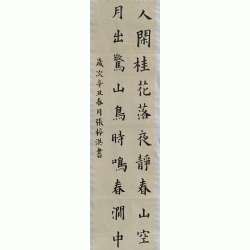 人閑桂花落夜靜春山空
月出驚山鳥時鳴春澗中
歲次辛丑春月張梓淇書